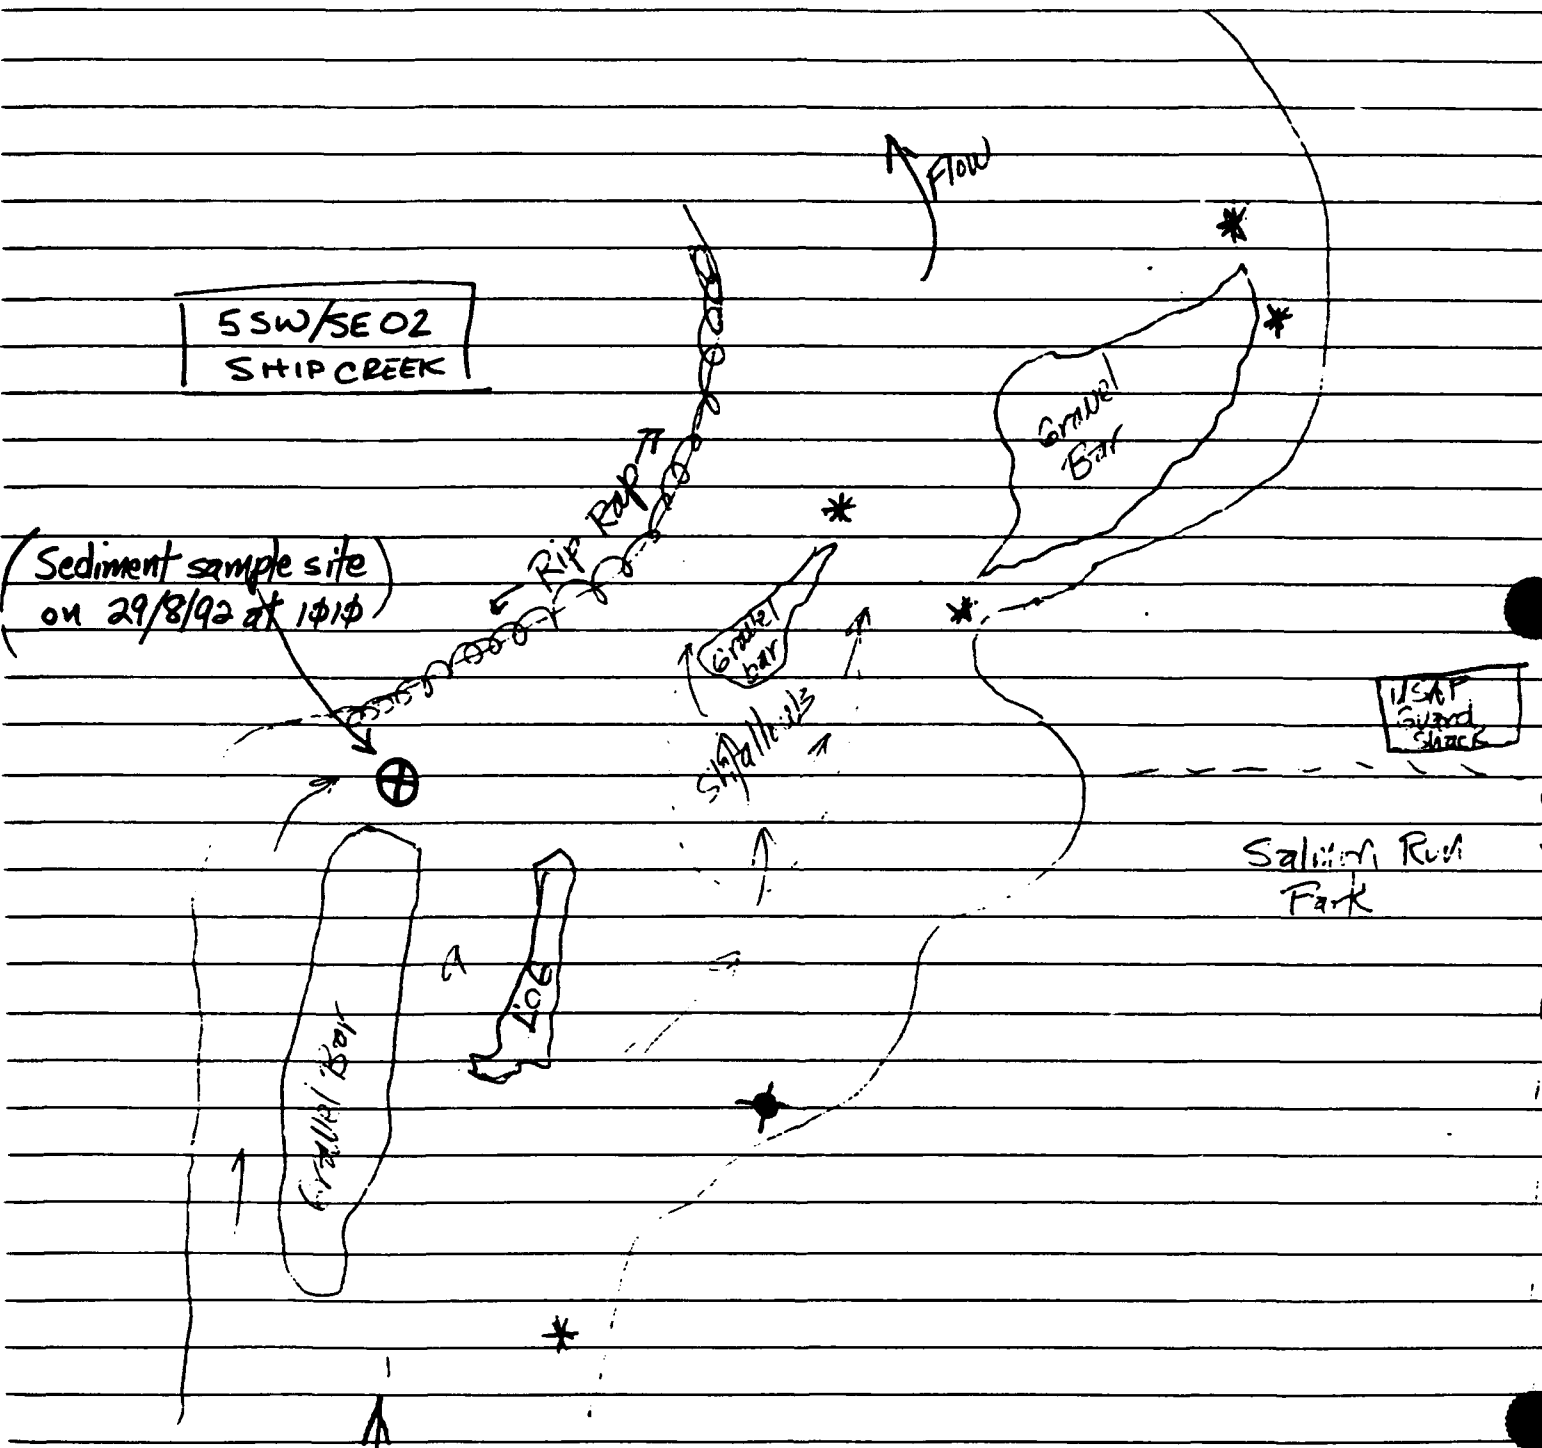 Flow
5SW/SE02
SHIP CREEK
Gravel
Bar
← Rip Rap
(Sediment sample site
on 29/8/92 at 1010)
Gravel
bar
USAF
Guard
Shack
Shallows
Salmon Run
Park
LOG
Gravel Bar